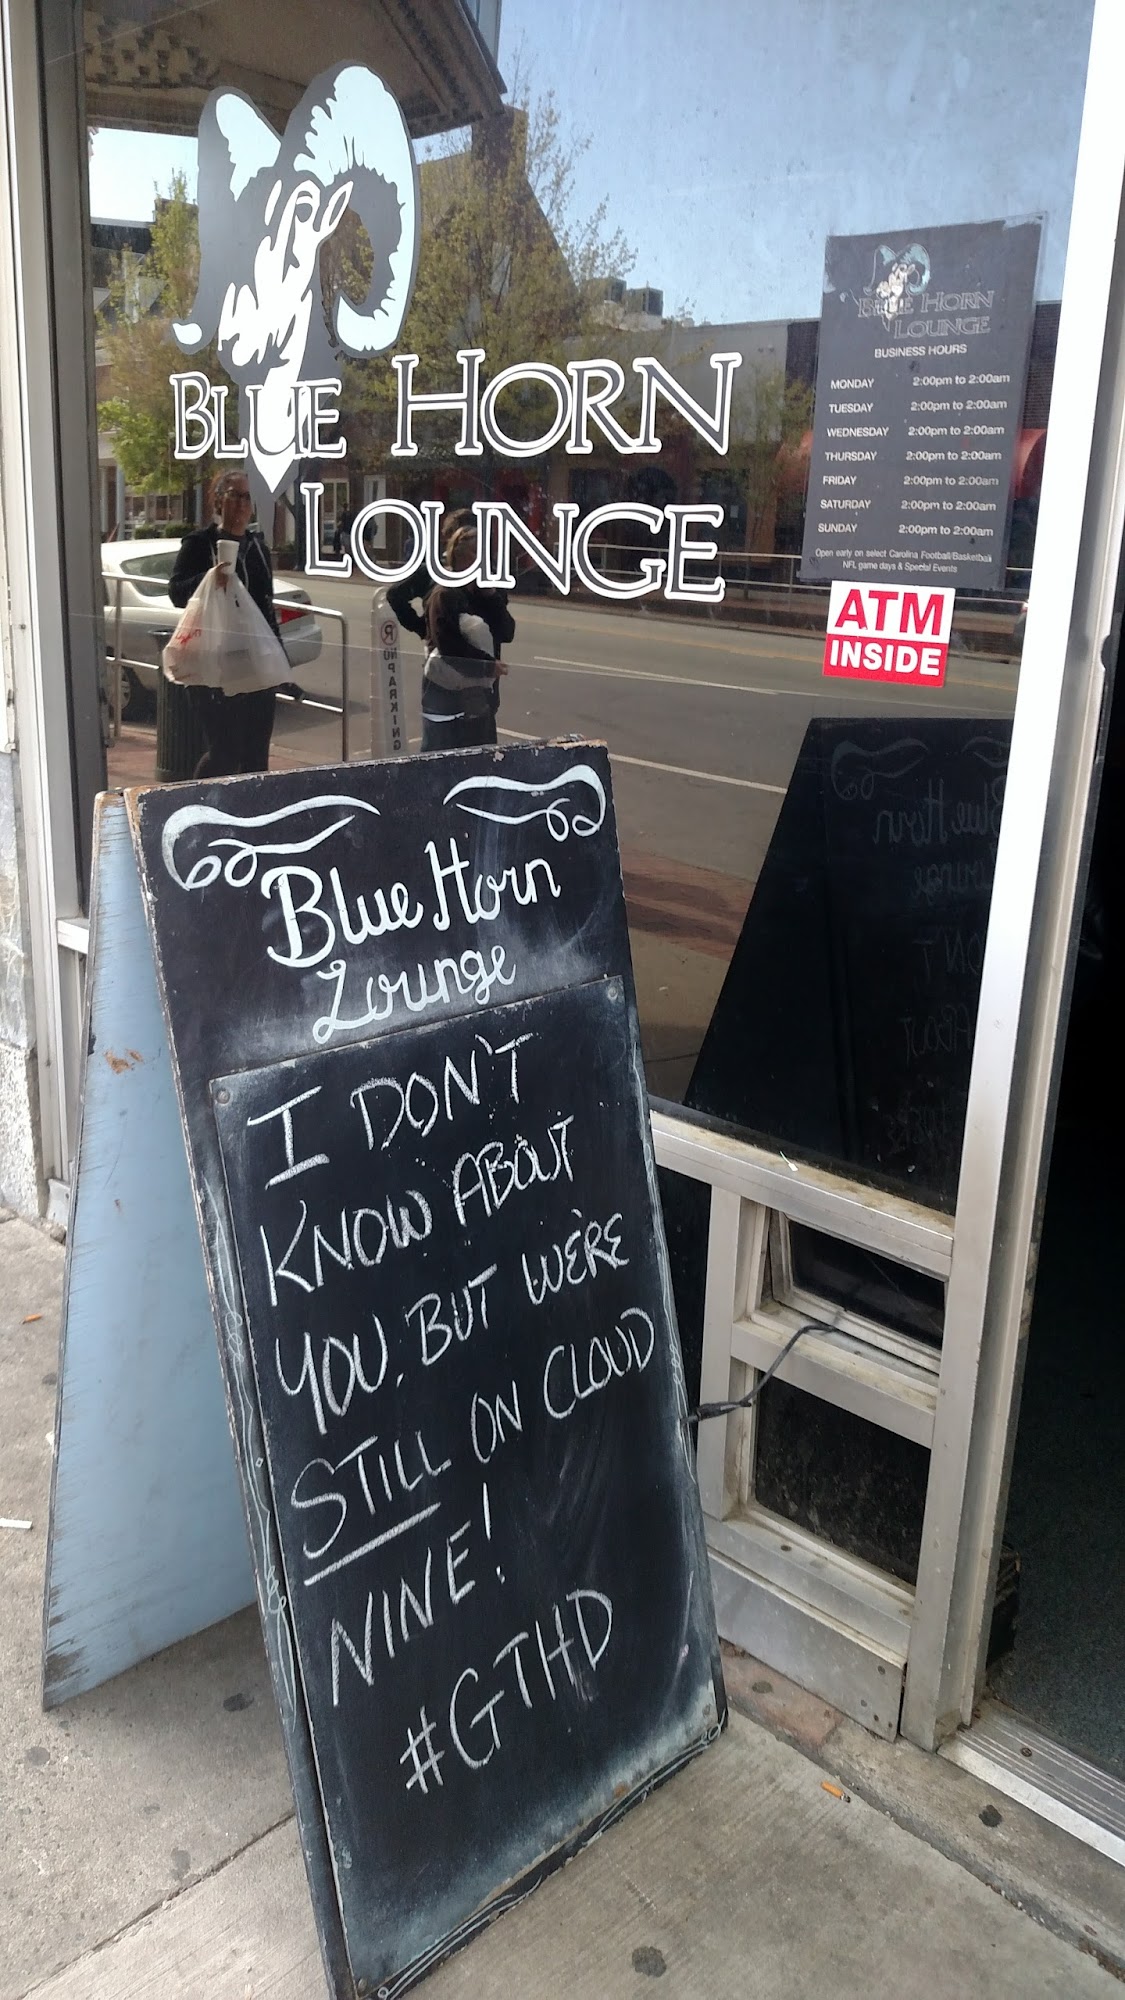 BLUE HORN
LOUNGE
BLUE HORN
LOUNGE
BUSINESS HOURS
MONDAY 2:00pm to 2:00am
TUESDAY 2:00pm to 2:00am
WEDNESDAY 2:00pm to 2:00am
THURSDAY 2:00pm to 2:00am
FRIDAY 2:00pm to 2:00am
SATURDAY 2:00pm to 2:00am
SUNDAY 2:00pm to 2:00am
Open early on select Carolina Football/Basketball
NFL game days & Special Events
ATM
INSIDE
NO PARKING
Blue Horn
Lounge
I DON'T
KNOW ABOUT
YOU, BUT WE'RE
STILL ON CLOUD
NINE!
#GTHD